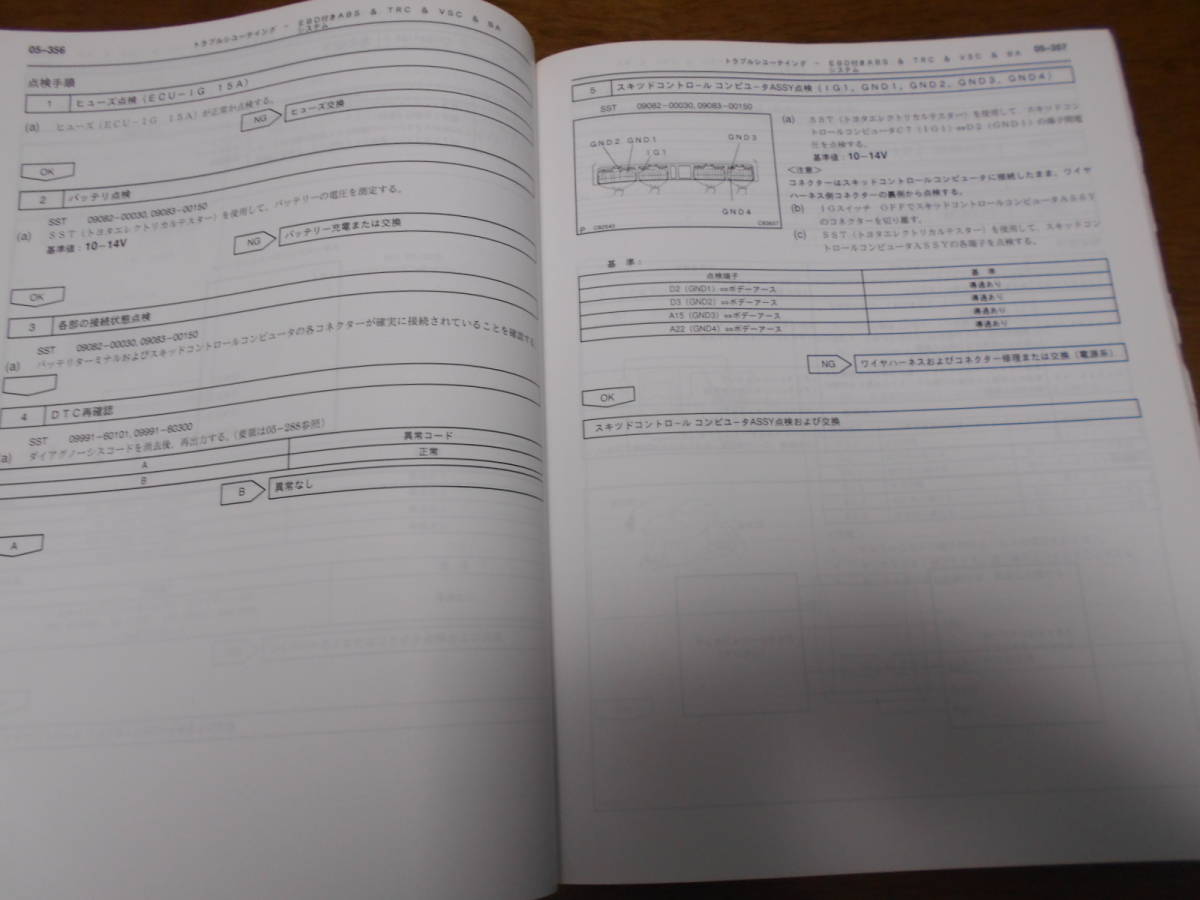 05-356
トラブルシューテイング - EBD付きABS & TRC & VSC & BA
システム
点検手順
1 ヒューズ点検（ECU-IG 15A）
(a) ヒューズ（ECU-IG 15A）が正常か点検する。
NG ヒューズ交換
OK
2 バッテリ点検
SST 09082-00030, 09083-00150
(a) SST（トヨタエレクトリカルテスター）を使用して、バッテリーの電圧を測定する。
基準値：10-14V
NG バッテリー充電または交換
OK
3 各部の接続状態点検
SST 09082-00030, 09083-00150
(a) バッテリターミナルおよびスキッドコントロールコンピュータの各コネクターが確実に接続されていることを確認する。
4 DTC再確認
SST 09991-60101, 09991-60300
(a) ダイアグノーシスコードを消去後、再出力する。（要領は05-288参照）
A 異常コード
B 正常
B 異常なし
A
トラブルシューテイング - EBD付きABS & TRC & VSC & BA 05-357
システム
5 スキッドコントロール コンピュータASSY点検（IG1, GND1, GND2, GND3, GND4）
SST 09082-00030, 09083-00150
GND2 GND1
IG1
GND3
GND4
P
(a) SST（トヨタエレクトリカルテスター）を使用して、スキッドコン
トロールコンピュータC7（IG1）⇔D2（GND1）の端子間電
圧を点検する。
基準値：10-14V
<注意>
コネクターはスキッドコントロールコンピュータに接続したまま、ワイヤ
ハーネス側コネクターの裏側から点検する。
(b) IGスイッチ OFFでスキッドコントロールコンピュータASSY
のコネクターを切り離す。
(c) SST（トヨタエレクトリカルテスター）を使用して、スキッドコン
トロールコンピュータASSYの各端子を点検する。
基 準：
点検端子 基 準
D2（GND1）⇔ボデーアース 導通あり
D3（GND2）⇔ボデーアース 導通あり
A15（GND3）⇔ボデーアース 導通あり
A22（GND4）⇔ボデーアース 導通あり
NG ワイヤハーネスおよびコネクター修理または交換（電源系）
OK
スキッドコントロール コンピュータASSY点検および交換